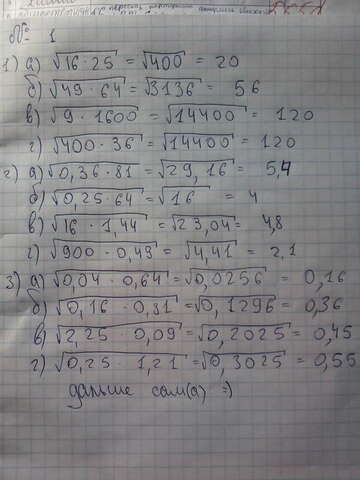 № 1
1) а) √16·25 = √400 = 20
б) √49·64 = √3136 = 56
в) √9·1600 = √14400 = 120
г) √400·36 = √14400 = 120
2) а) √0,36·81 = √29,16 = 5,4
б) √0,25·64 = √16 = 4
в) √16·1,44 = √23,04 = 4,8
г) √900·0,49 = √4,41 = 2,1
3) а) √0,04·0,64 = √0,0256 = 0,16
б) √0,16·0,81 = √0,1296 = 0,36
в) √2,25·0,09 = √0,2025 = 0,45
г) √0,25·1,21 = √0,3025 = 0,55
дальше сам(а) =)